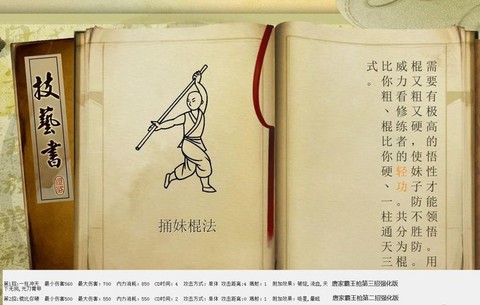 技藝書
捅妹棍法
需要有极高的悟性才能领悟。用
棍又粗又硬，使妹子防不胜防。
威力看修练者的轻功。共分为棍
比你粗、棍比你硬、一柱通天三
式。
最小伤害560 最大伤害：700 内力消耗：650 CD时间：4 攻击方式：单体 攻击距离：4 高射：1 附加效果：破绽，流血，天 唐家霸王枪第三招强化版
最小伤害500 最大伤害：550 内力消耗：550 CD时间：2 攻击方式：单体 攻击距离：0 高射：1 附加效果：吸星，晕眩 唐家霸王枪第二招强化版